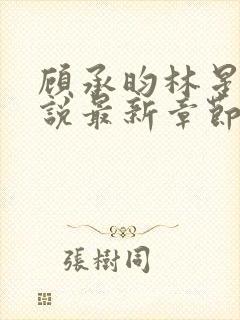 顾承昀林星
說最新章節
張樹同